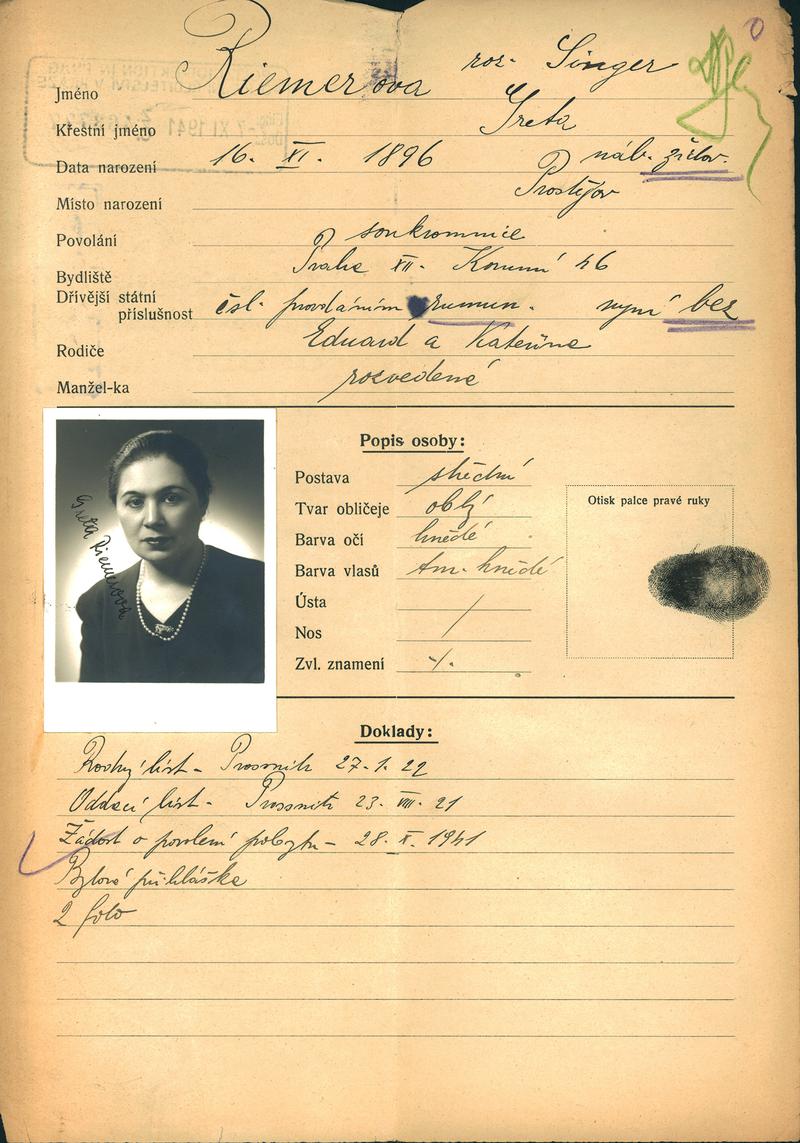 Jméno Riemerova roz. Singer
Křestní jméno Greta
Datum narození 16. XI. 1896 náb. židov.
Místo narození Prostějov
Povolání soukromnice
Bydliště Praha XII. Korunní 46
Dřívější státní
příslušnost čsl. provdáním rumun. nyní bez
Rodiče Eduard a Kateřina
Manžel-ka rozvedená
Greta Riemerova
Popis osoby:
Postava střední
Tvar obličeje oblý
Barva očí hnědé
Barva vlasů tm. hnědé
Ústa /
Nos
Zvl. znamení ./.
Otisk palce pravé ruky
Doklady:
Rodný list - Prossnitz 27.1.22
Oddací list - Prossnitz 23. VIII. 21
Žádost o povolení pobytu - 28. X. 1941
Bytová přihláška
2 foto